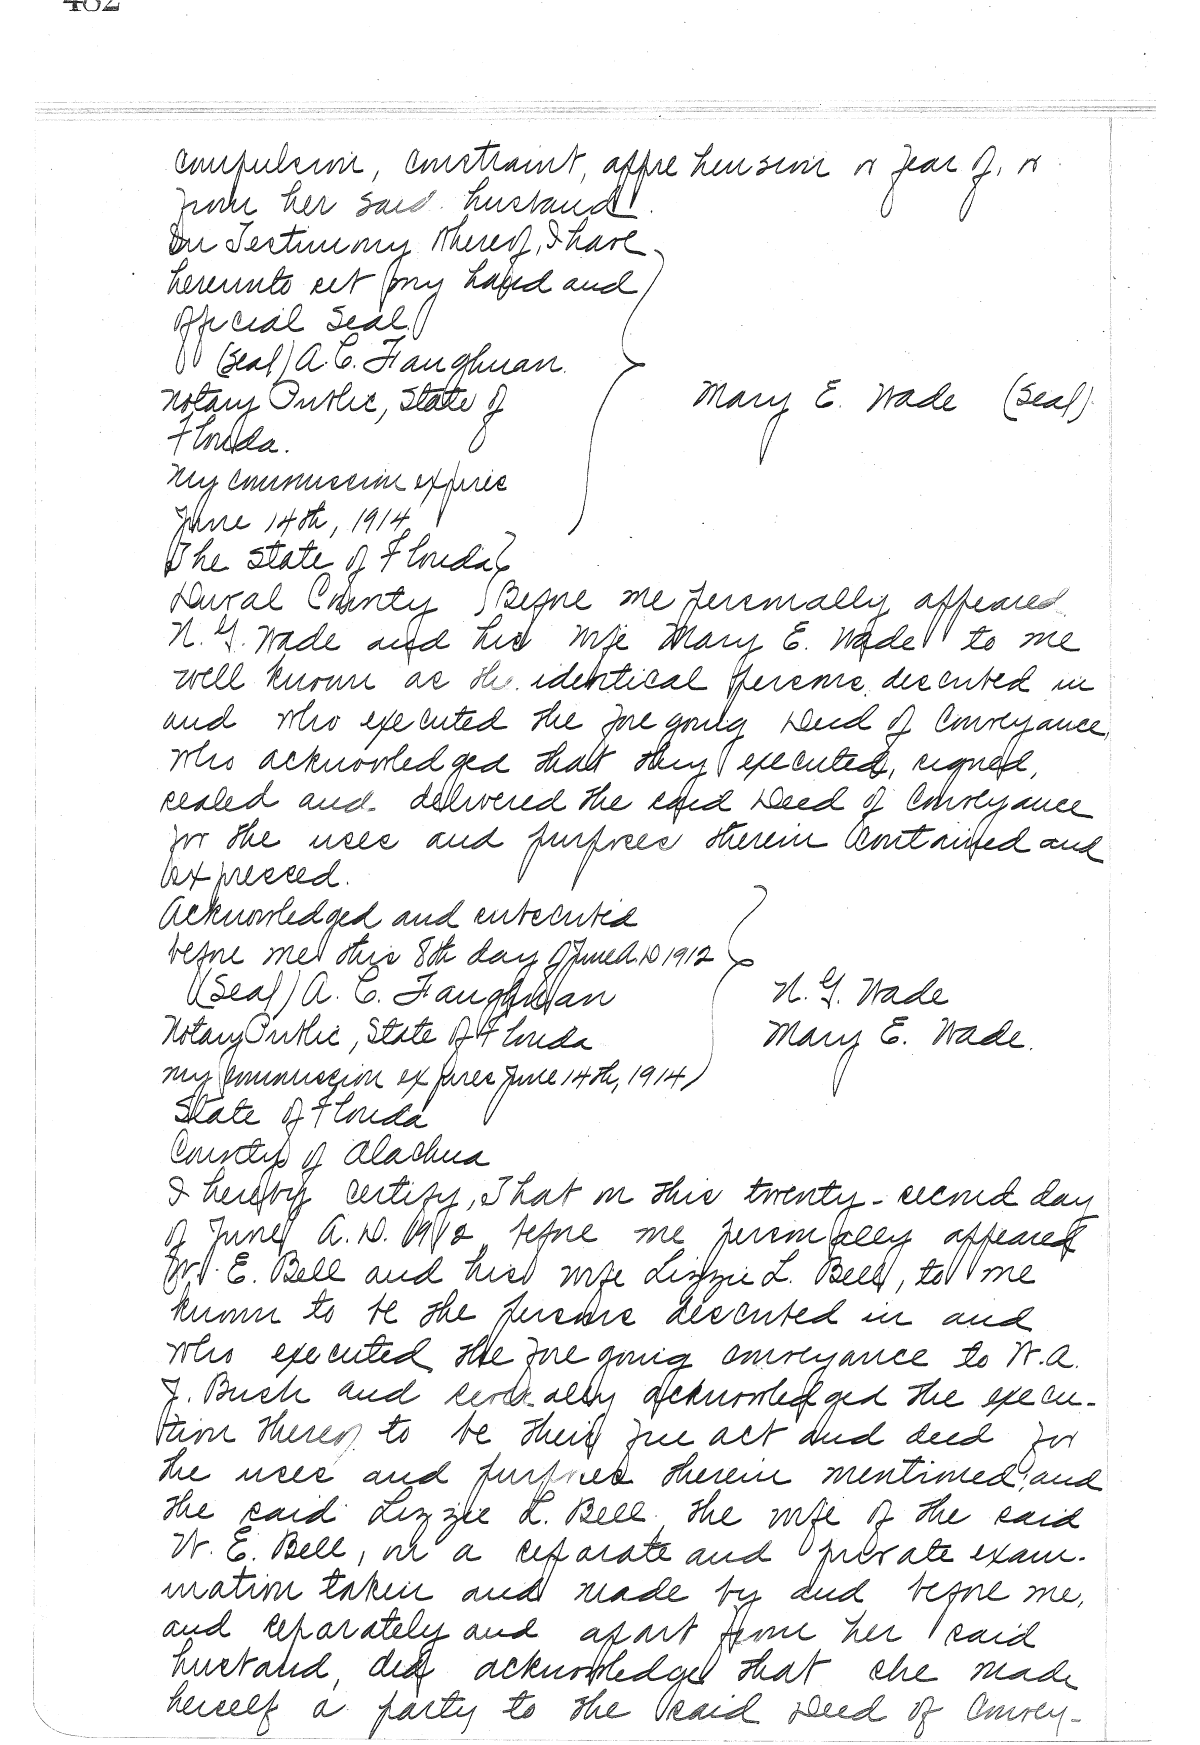 482
compulsion, constraint, apprehension or fear of, or
from her said husband.
In Testimony Whereof, I have
hereunto set my hand and
official seal.
(Seal) A. C. Faughnan.
Notary Public, State of
Florida.
My commission expires
June 14th, 1914
Mary E. Wade (Seal).
The State of Florida
Duval County Before me personally appeared
N. G. Wade and his wife Mary E. Wade to me
well known as the identical persons described in
and who executed the foregoing Deed of Conveyance,
who acknowledged that they executed, signed,
sealed and delivered the said Deed of Conveyance
for the uses and purposes therein contained and
expressed.
Acknowledged and
before me this 8th day of June A.D 1912
(Seal) A. C. Faughnan
Notary Public, State of Florida
My commission expires June 14th, 1914
N. G. Wade
Mary E. Wade.
State of Florida
County of Alachua
I hereby certify, That on this twenty-second day
of June A.D. 1912 before me personally appeared
W. E. Bell and his wife Lizzie L. Bell, to me
known to be the persons described in and
who executed the foregoing conveyance to W.A.
J. Bush and severally acknowledged the execu-
tion thereof to be their free act and deed for
the uses and purposes therein mentioned, and
the said Lizzie L. Bell, the wife of the said
W. E. Bell, on a separate and private exam-
ination taken and made by and before me,
and separately and apart from her said
husband, did acknowledge that she made
herself a party to the said Deed of Convey-